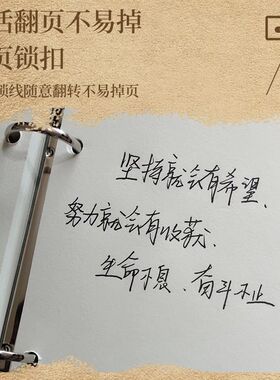 活翻页不易掉
页锁扣
锁线随意翻转不易掉页
坚持就会有希望,
努力就会有收获,
生命不息、奋斗不止